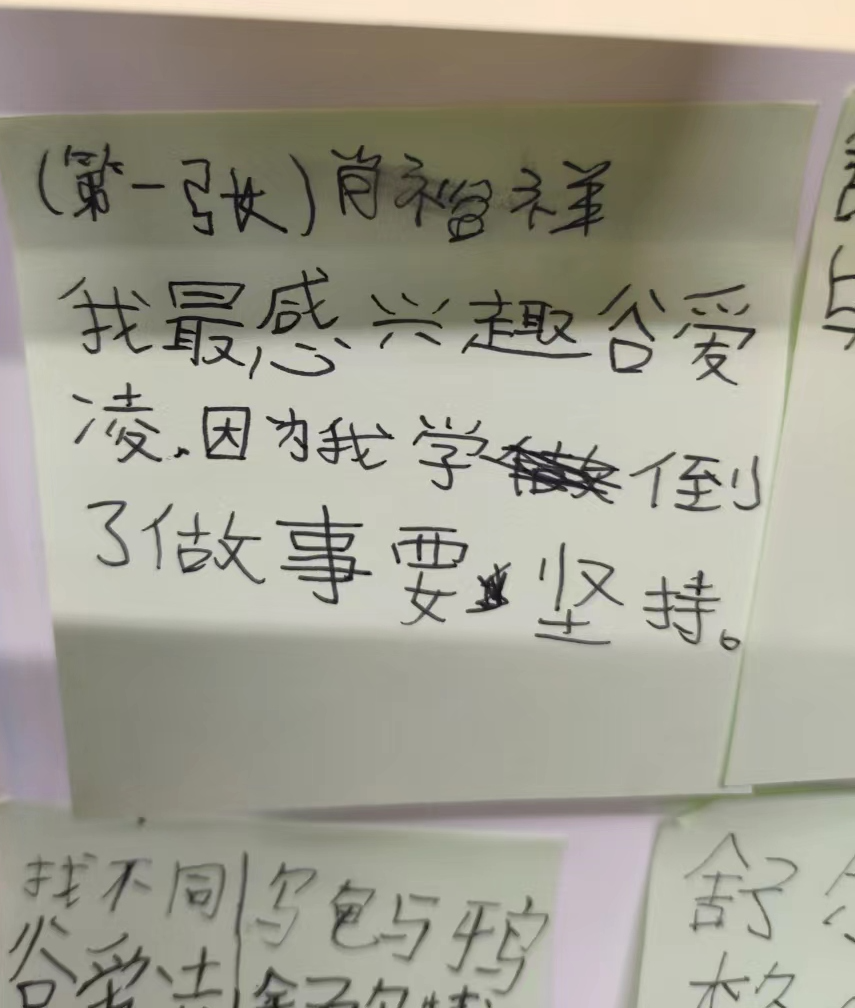 (第一张)肖福祥
我最感兴趣谷爱
凌.因为我学倒
了做事要坚持。
找不同
谷爱
乌龟与鸦
舒了